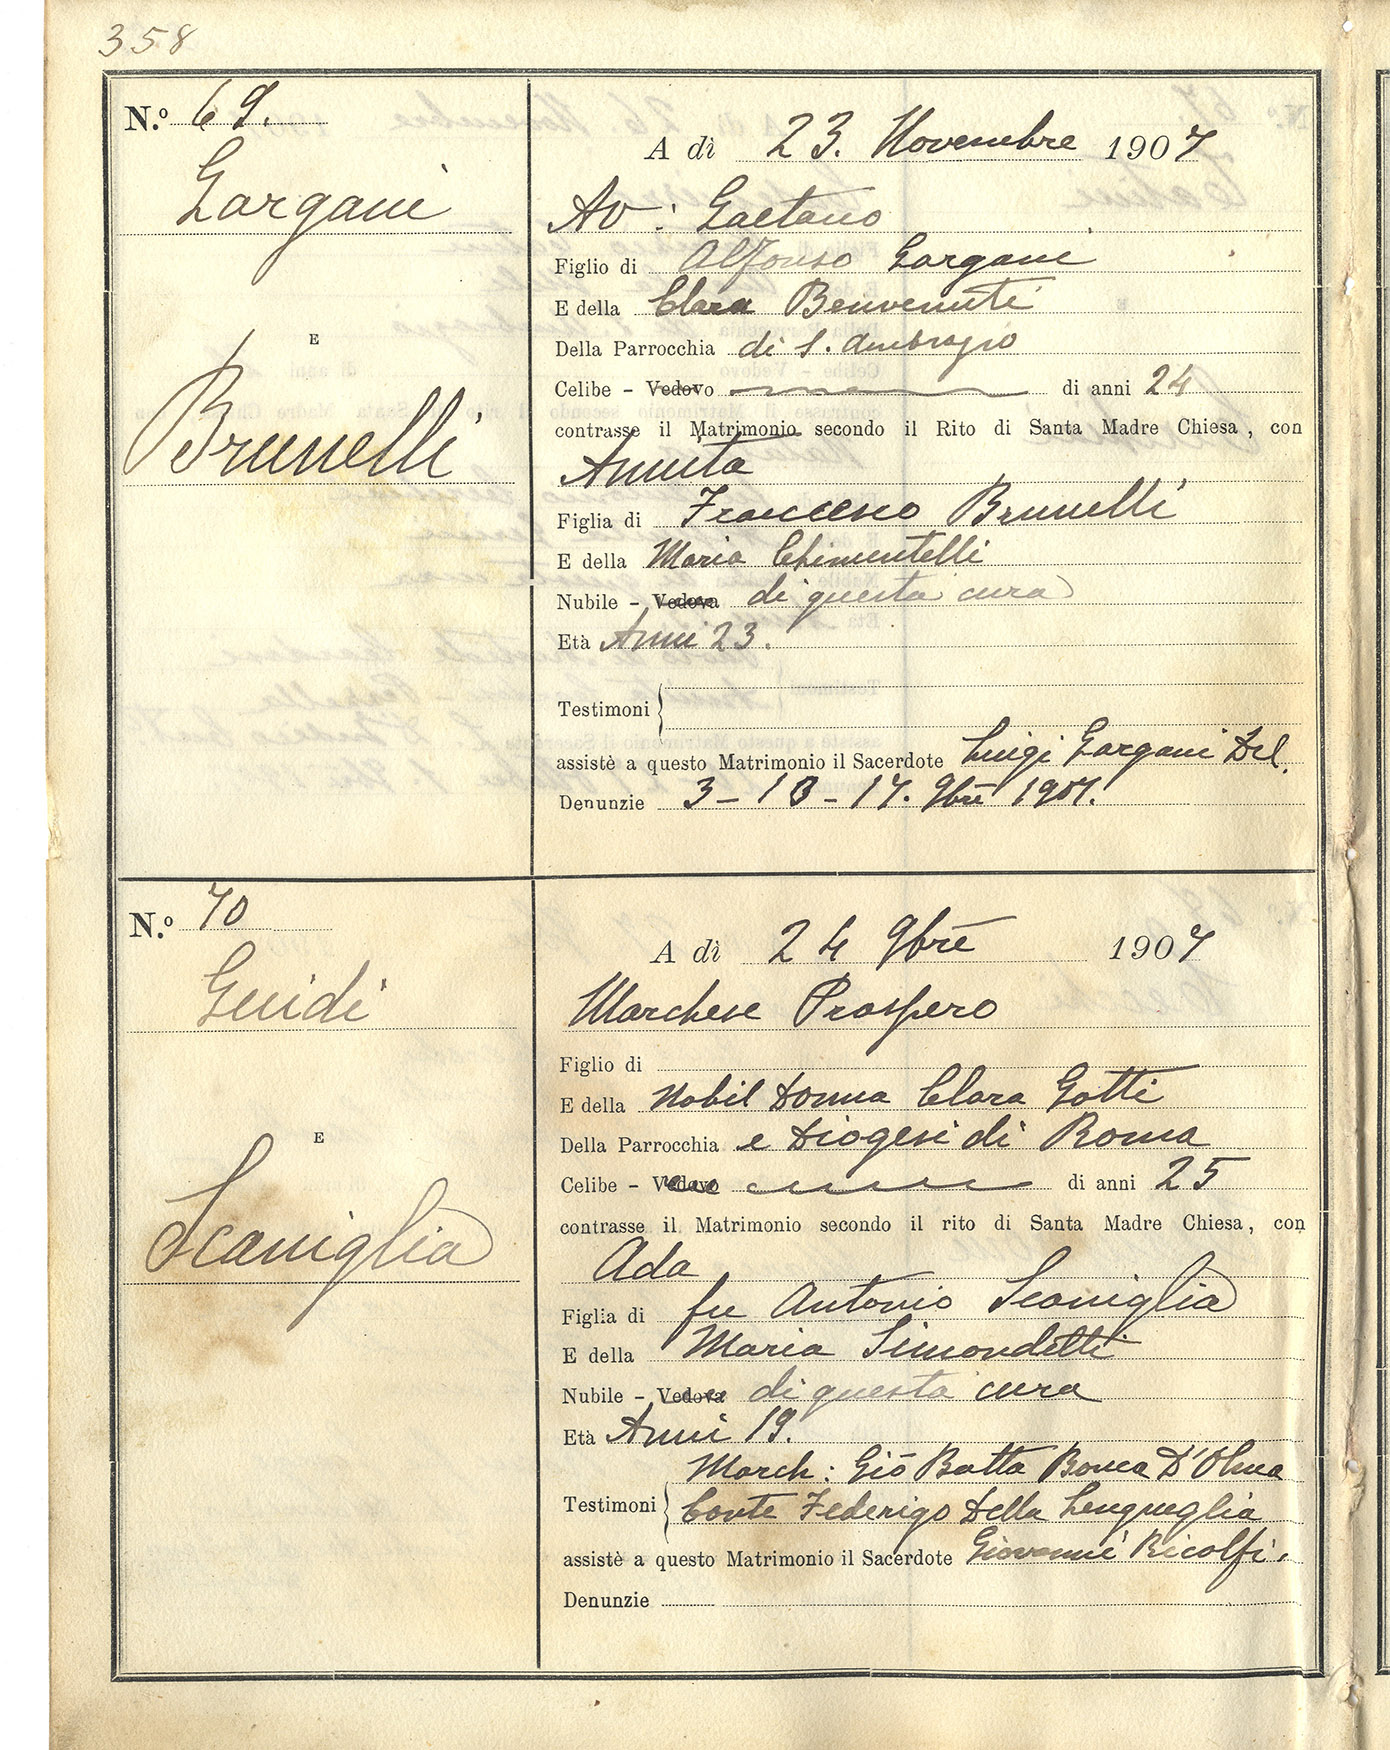 358
N.o 69.
Gargani
E
Brunelli
A dì 23. Novembre 1907
Av: Gaetano
Figlio di Alfonso Gargani
E della Clara Benvenuti
Della Parrocchia di S. Ambrogio
Celibe - Vedovo di anni 24
contrasse il Matrimonio secondo il Rito di Santa Madre Chiesa, con
Annita
Figlia di Francesco Brunelli
E della Maria Chimentelli
Nubile - Vedova di questa cura
Età Anni 23.
Testimoni
assistè a questo Matrimonio il Sacerdote Luigi Gargani Del.
Denunzie 3 - 10 - 17. 9bre 1907.
N.o 70
Guidi
E
Scaniglia
A dì 24 9bre 1907
Marchese Prospero
Figlio di
E della Nobil Donna Clara Gotti
Della Parrocchia e Diogesi di Roma
Celibe - Vedovo di anni 25
contrasse il Matrimonio secondo il rito di Santa Madre Chiesa, con
Ada
Figlia di fu Antonio Scaniglia
E della Maria Simondetti
Nubile - Vedova di questa cura
Età Anni 19.
March: Gio Batta D'Olmo
Testimoni Conte Federigo Della Lengueglia
assistè a questo Matrimonio il Sacerdote Giovanni Ricolfi.
Denunzie